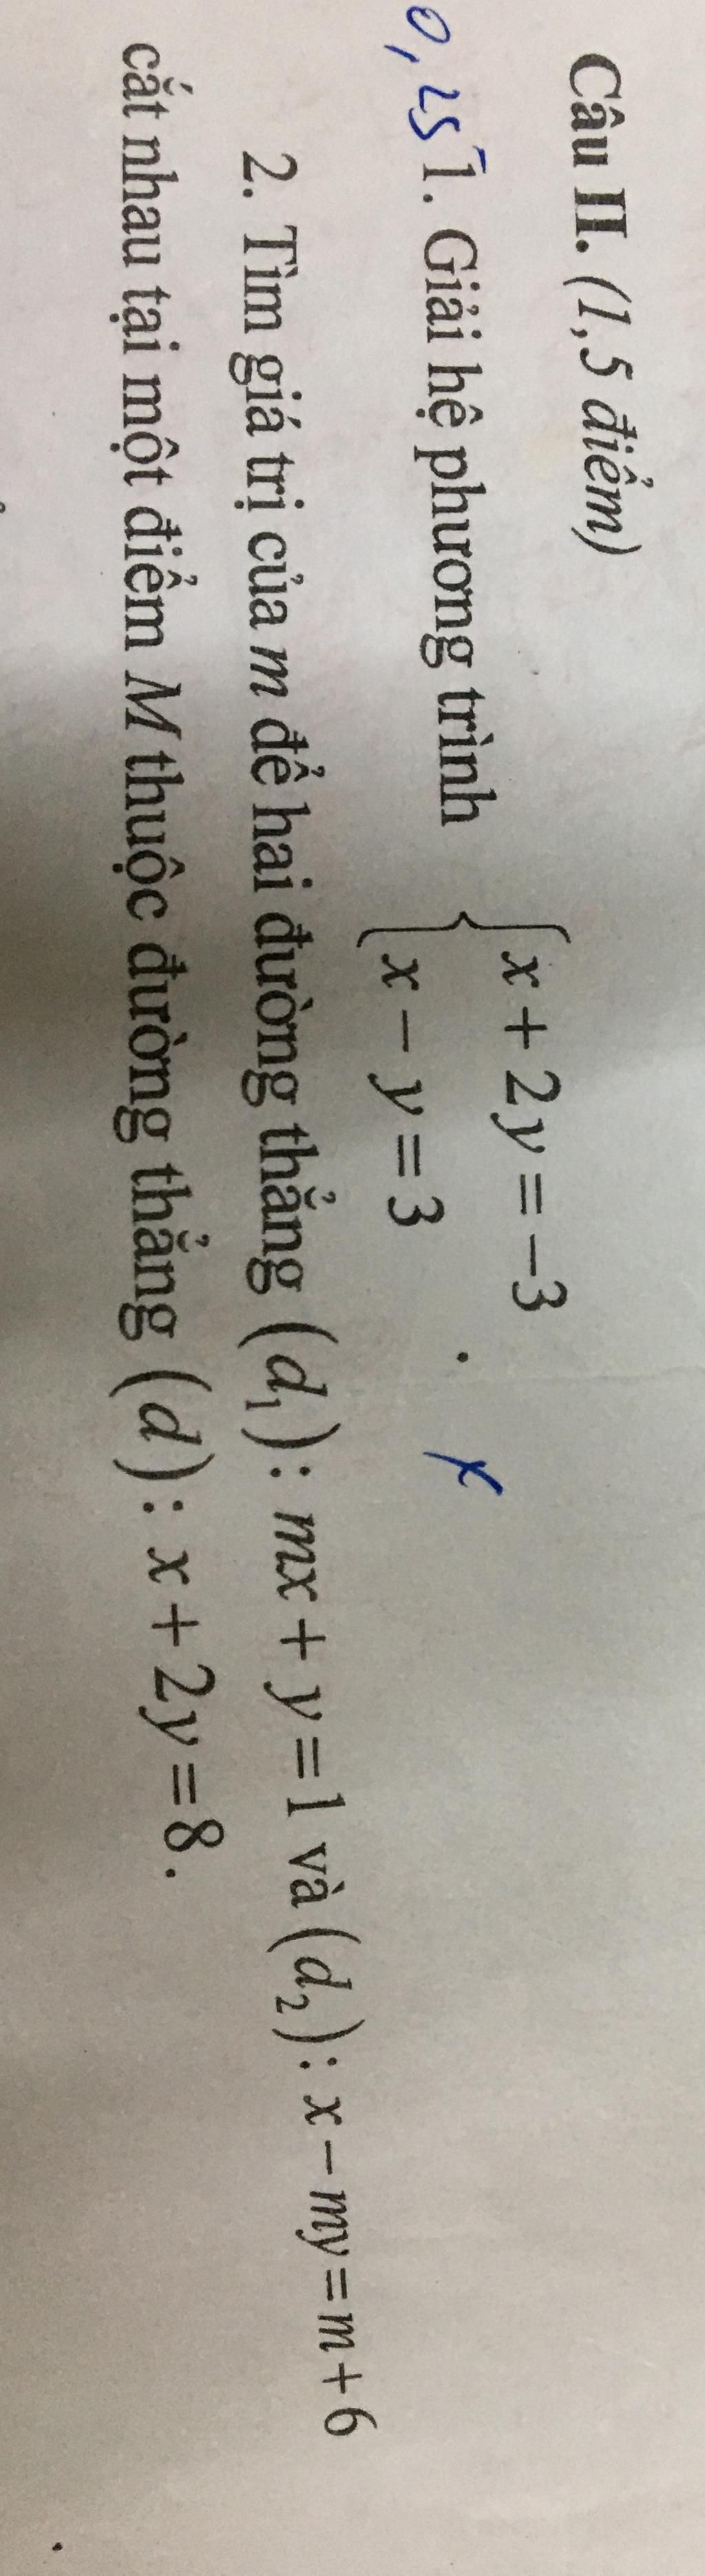 Câu II. (1,5 điểm)
0,25 1. Giải hệ phương trình { x + 2y = −3
x − y = 3 .
2. Tìm giá trị của m để hai đường thẳng (d₁): mx + y = 1 và (d₂): x − my = m + 6
cắt nhau tại một điểm M thuộc đường thẳng (d): x + 2y = 8.